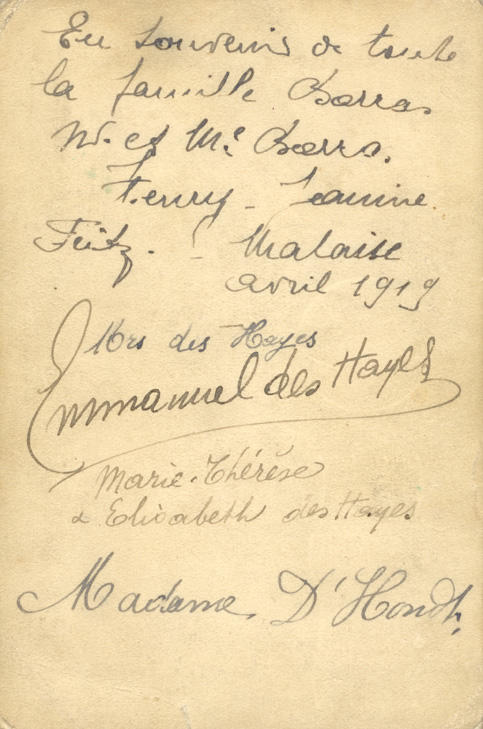 En souvenir de toute
la famille Barras
Mr. et Me Barras.
Henry - Jeanine.
Fritz. - Malaise
avril 1919
Mrs des Hayes
Emmanuel des Hayes
Marie-Thérèse
& Elisabeth des Hayes
Madame D'Hondt.